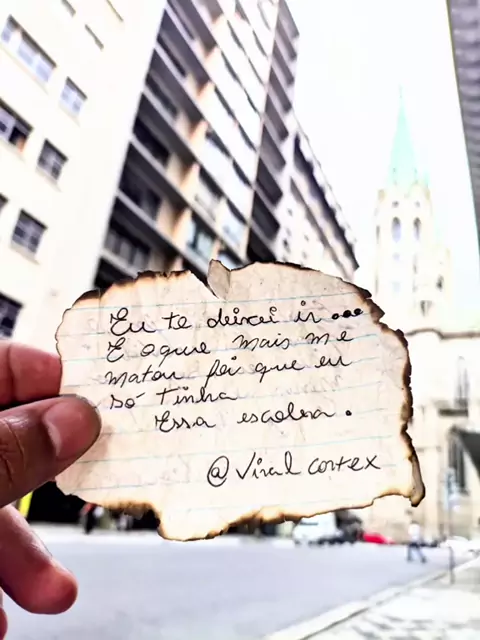 Eu te deixei ir...
E oque mais me
matou foi que eu
só tinha
Essa escolha.
@Viralcortex